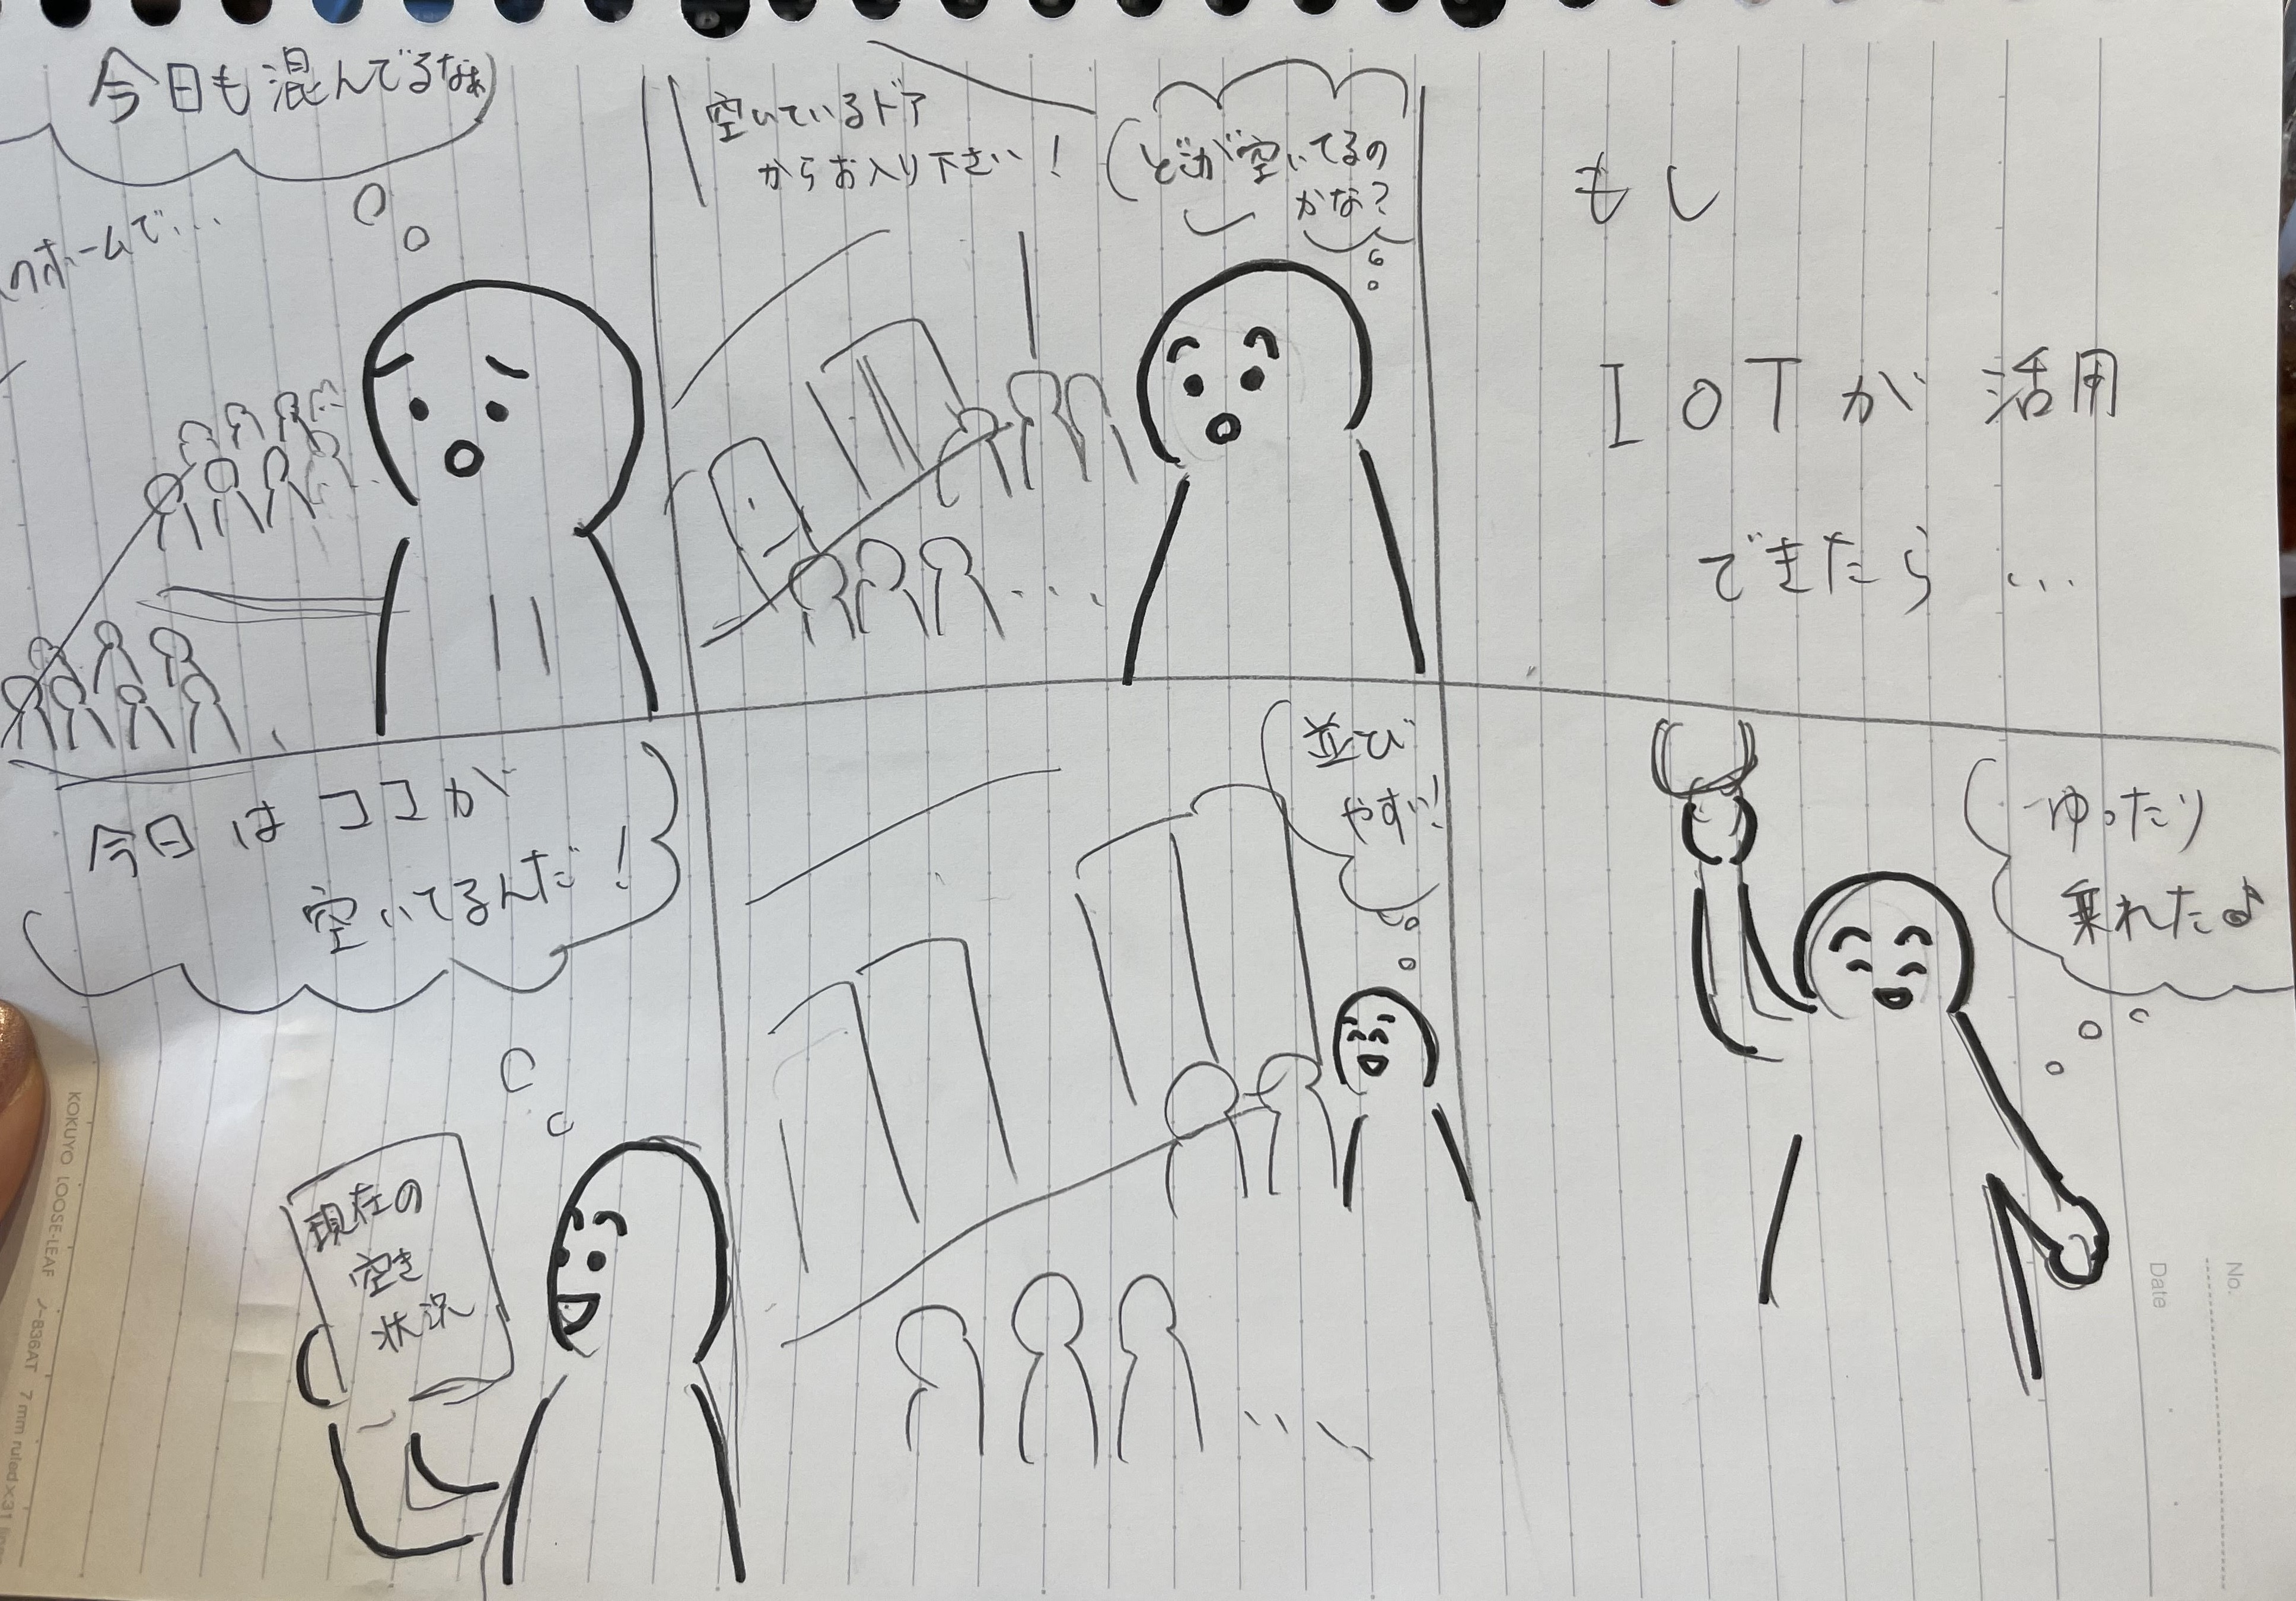 今日も混んでるなぁ
のホームで...
空いているドア
からお入り下さい!
どこが空いてるの
かな?
もし
IOTが活用
できたら...
今日はココが
空いてるんだ!
現在の
空き
状況
並び
やすい!
ゆったり
乗れた♪
KOKUYO LOOSE-LEAF ノ-836AT 7 mm ruled×31
Date
No.